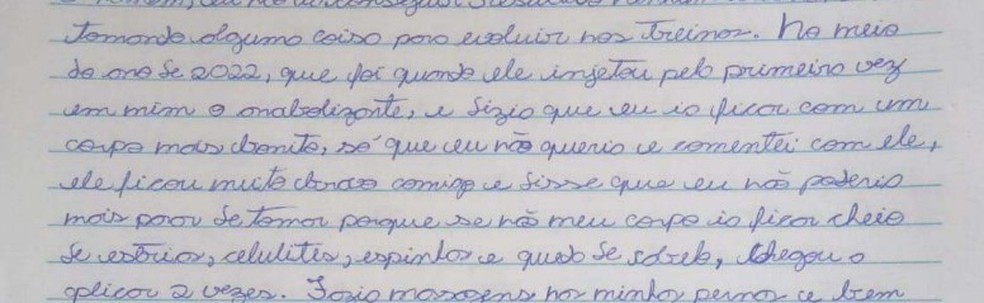 o homem, eu não ia conseguir resultado nenhum
tomando alguma coisa para evoluir nos treinos. No meio
do ano de 2022, que foi quando ele injetou pela primeira vez
em mim o anabolizante, e dizia que eu ia ficar com um
corpo mais bonito, só que eu não queria e comentei com ele,
ele ficou muito bravo comigo e disse que eu não poderia
mais parar de tomar porque se não meu corpo ia ficar cheio
de estrias, celulites, espinhas e queda de cabelo, chegou a
aplicar 2 vezes. Fazia massagens nas minhas pernas e bem